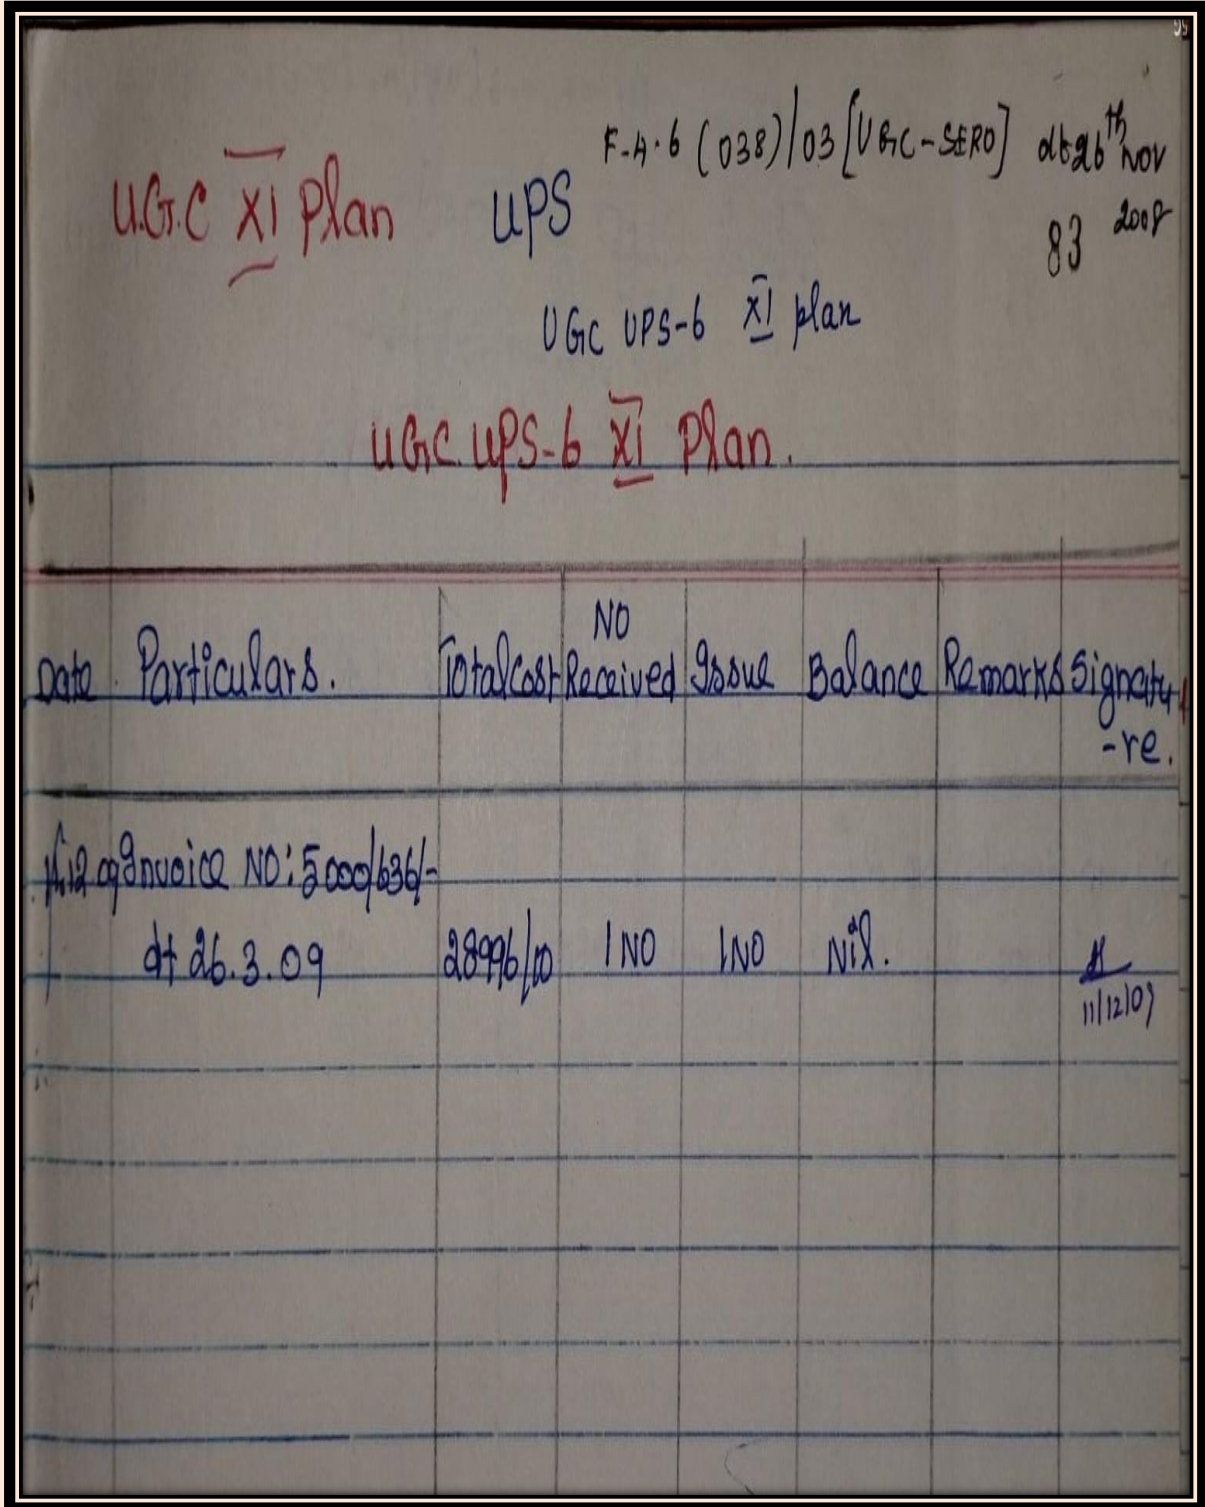 F-4.6 (038)/03 [UGC-SERO] dt 26th Nov 2008
U.G.C XI Plan UPS 83
UGC UPS-6 XI plan
UGC UPS-6 XI Plan.
Date Particulars. Total Cost NO Received Issue Balance Remarks Signatu-re.
Invoice NO: 5000/636/-
dt 26.3.09 28996/00 1 NO 1 NO Nil.
11/12/09